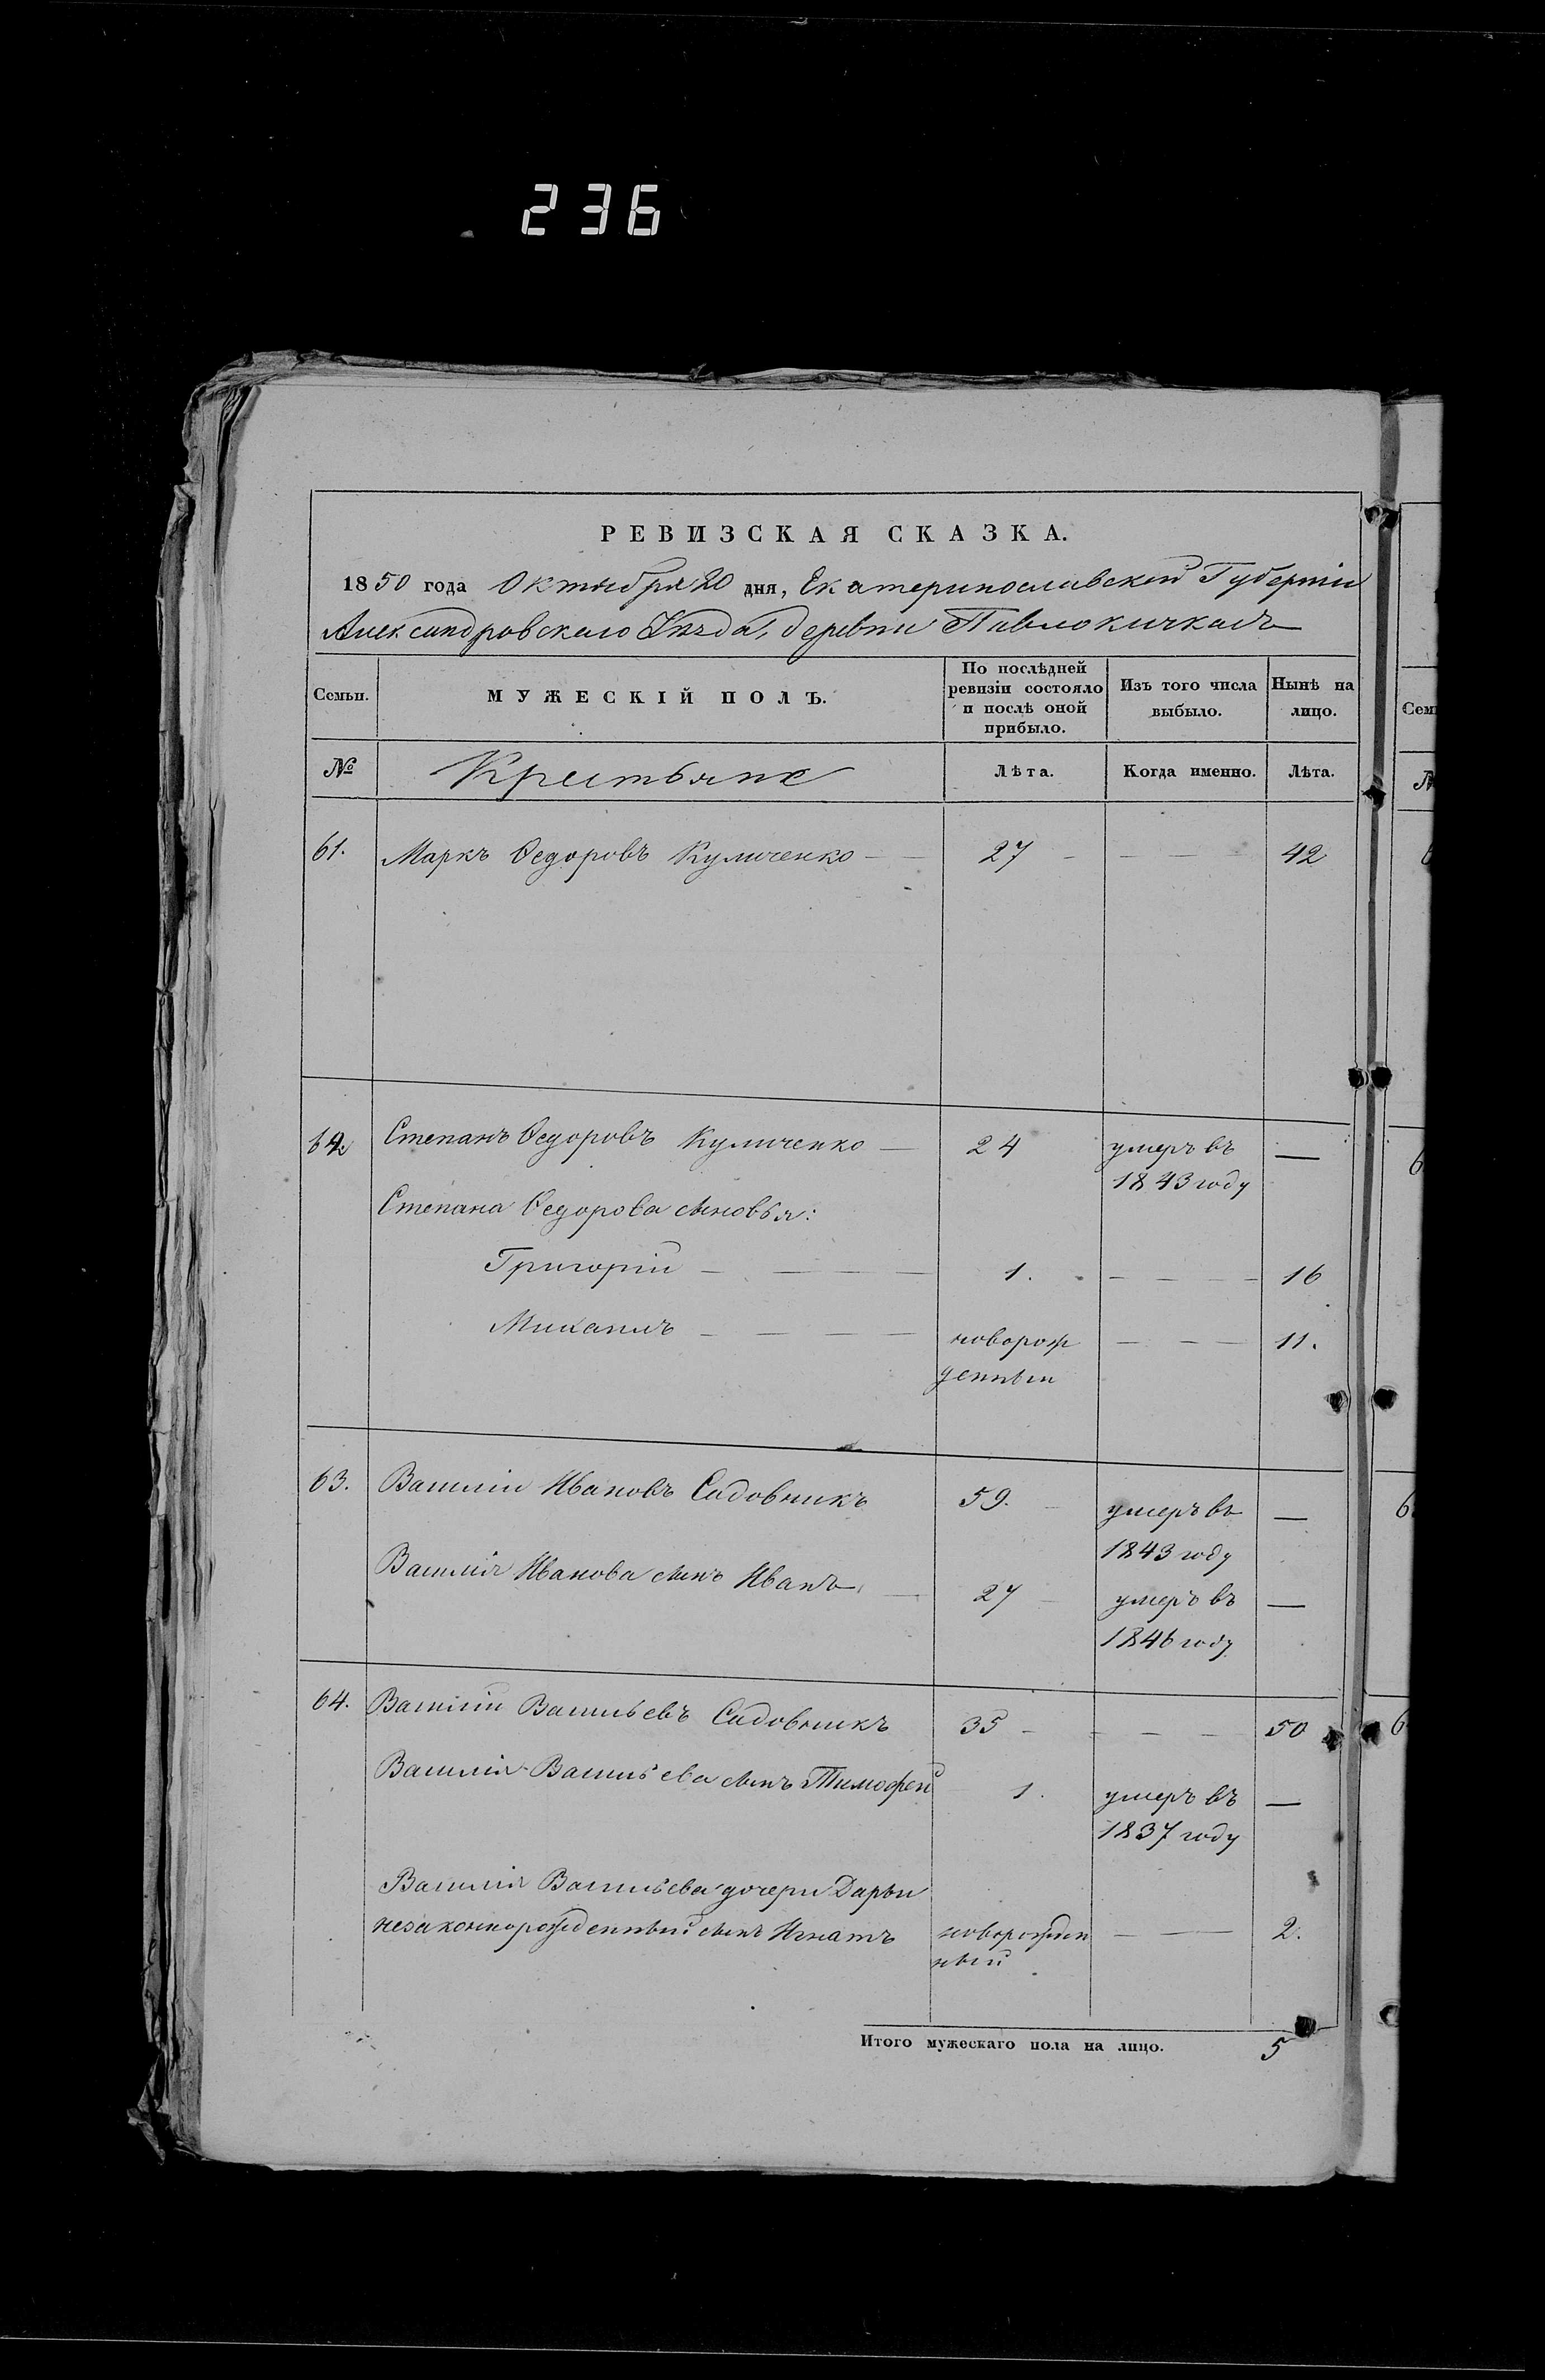 236
РЕВИЗСКАЯ СКАЗКА.
1850 года Октября 20 дня, Екатеринославской Губерніи
Александровскаго Уѣзда, деревни Павлокичкасъ
Семьи. МУЖЕСКІЙ ПОЛЪ. По послѣдней ревизіи состояло и послѣ оной прибыло. Изъ того числа выбыло. Нынѣ на лицо.
№ Крестьяне Лѣта. Когда именно. Лѣта.
61. Маркъ Ѳедоровъ Куличенко 27 42
62 Степанъ Ѳедоровъ Куличенко 24 умеръ въ —
1843 году
Степана Ѳедорова сыновья:
Григорій 1. 16
Михаилъ новорож 11.
денный
63. Василій Ивановъ Садовникъ 59. умеръ въ —
1843 году
Василія Иванова сынъ Иванъ 27 умеръ въ —
1846 году
64. Василій Васильевъ Садовникъ 35 50
Василія Васильева сынъ Тимофей 1. умеръ въ —
1837 году
Василія Васильева дочери Дарьи
незаконнорожденный сынъ Игнатъ новорожден 2.
ный
Итого мужескаго пола на лицо. 5
Сем
№
6
6
6